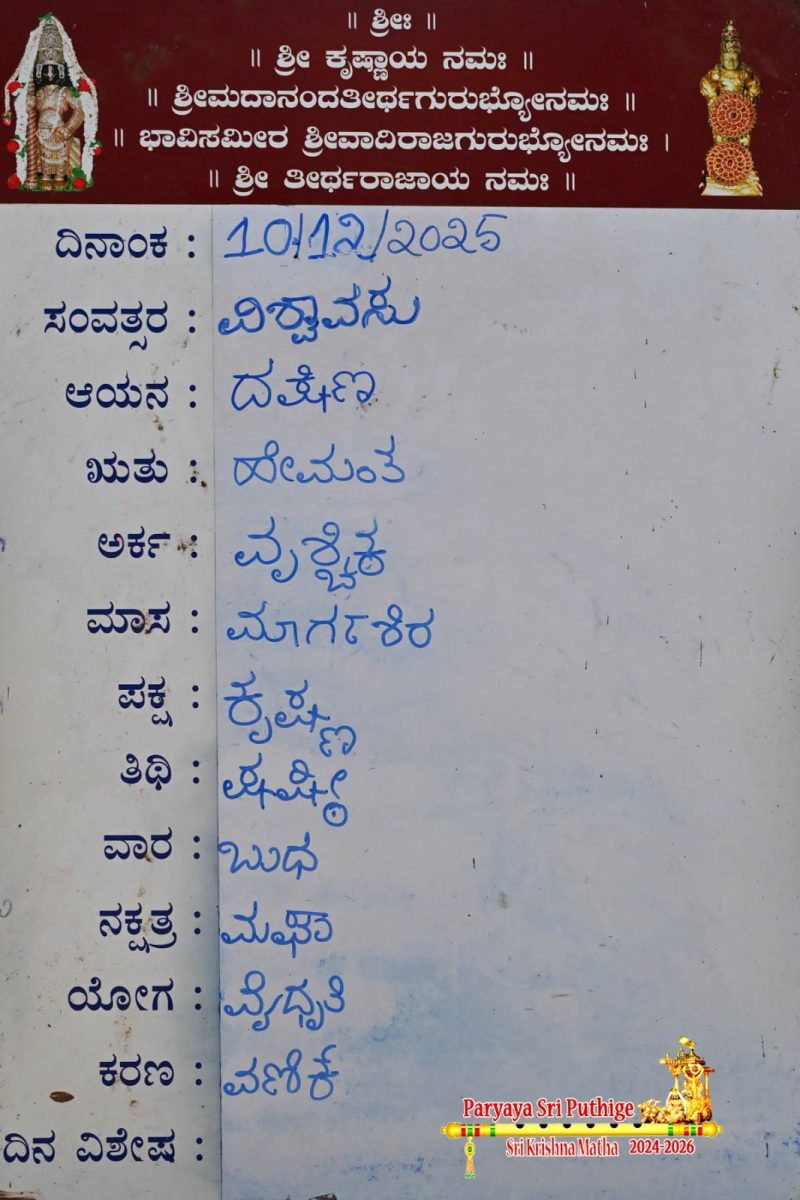 ॥ ಶ್ರೀಃ ॥
॥ ಶ್ರೀ ಕೃಷ್ಣಾಯ ನಮಃ ॥
॥ ಶ್ರೀಮದಾನಂದತೀರ್ಥಗುರುಭ್ಯೋನಮಃ ॥
॥ ಭಾವಿಸಮೀರ ಶ್ರೀವಾದಿರಾಜಗುರುಭ್ಯೋನಮಃ ।
॥ ಶ್ರೀ ತೀರ್ಥರಾಜಾಯ ನಮಃ ॥
ದಿನಾಂಕ : 10/12/2025
ಸಂವತ್ಸರ : ವಿಶ್ವಾವಸು
ಆಯನ : ದಕ್ಷಿಣ
ಋತು : ಹೇಮಂತ
ಅರ್ಕ : ವೃಶ್ಚಿಕ
ಮಾಸ : ಮಾರ್ಗಶಿರ
ಪಕ್ಷ : ಕೃಷ್ಣ
ತಿಥಿ : ಷಷ್ಠೀ
ವಾರ : ಬುಧ
ನಕ್ಷತ್ರ : ಮಘಾ
ಯೋಗ : ವೈಧೃತಿ
ಕರಣ : ವಣಿಕೆ
ದಿನ ವಿಶೇಷ :
Paryaya Sri Puthige
Sri Krishna Matha 2024-2026